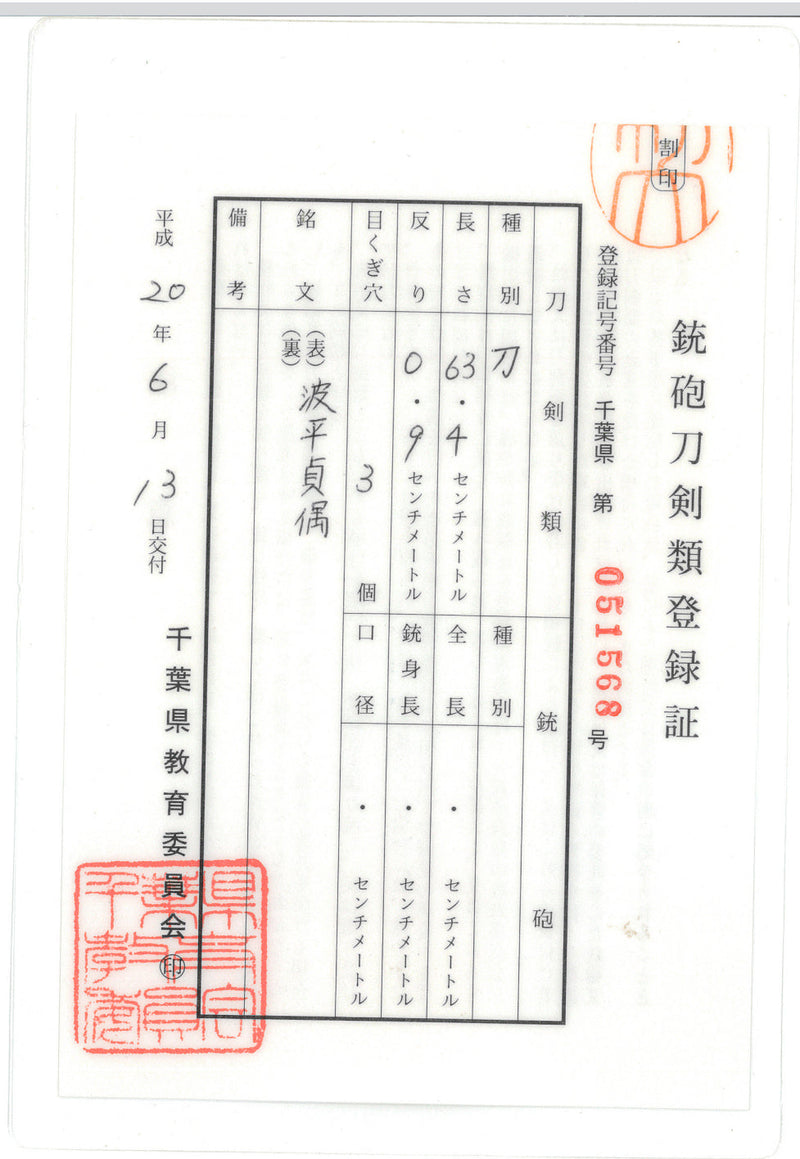 割印
銃砲刀剣類登録証
登録記号番号 千葉県 第 051568 号
刀剣類
種別 刀
長さ 63.4 センチメートル
反り 0.9 センチメートル
目くぎ穴 3 個
銘文
(表) 波平貞偶
(裏)
備考
銃砲
種別
全長 ・ センチメートル
銃身長 ・ センチメートル
口径 ・ センチメートル
平成 20 年 6 月 13 日交付
千葉県教育委員会 印
千葉県教育委員会